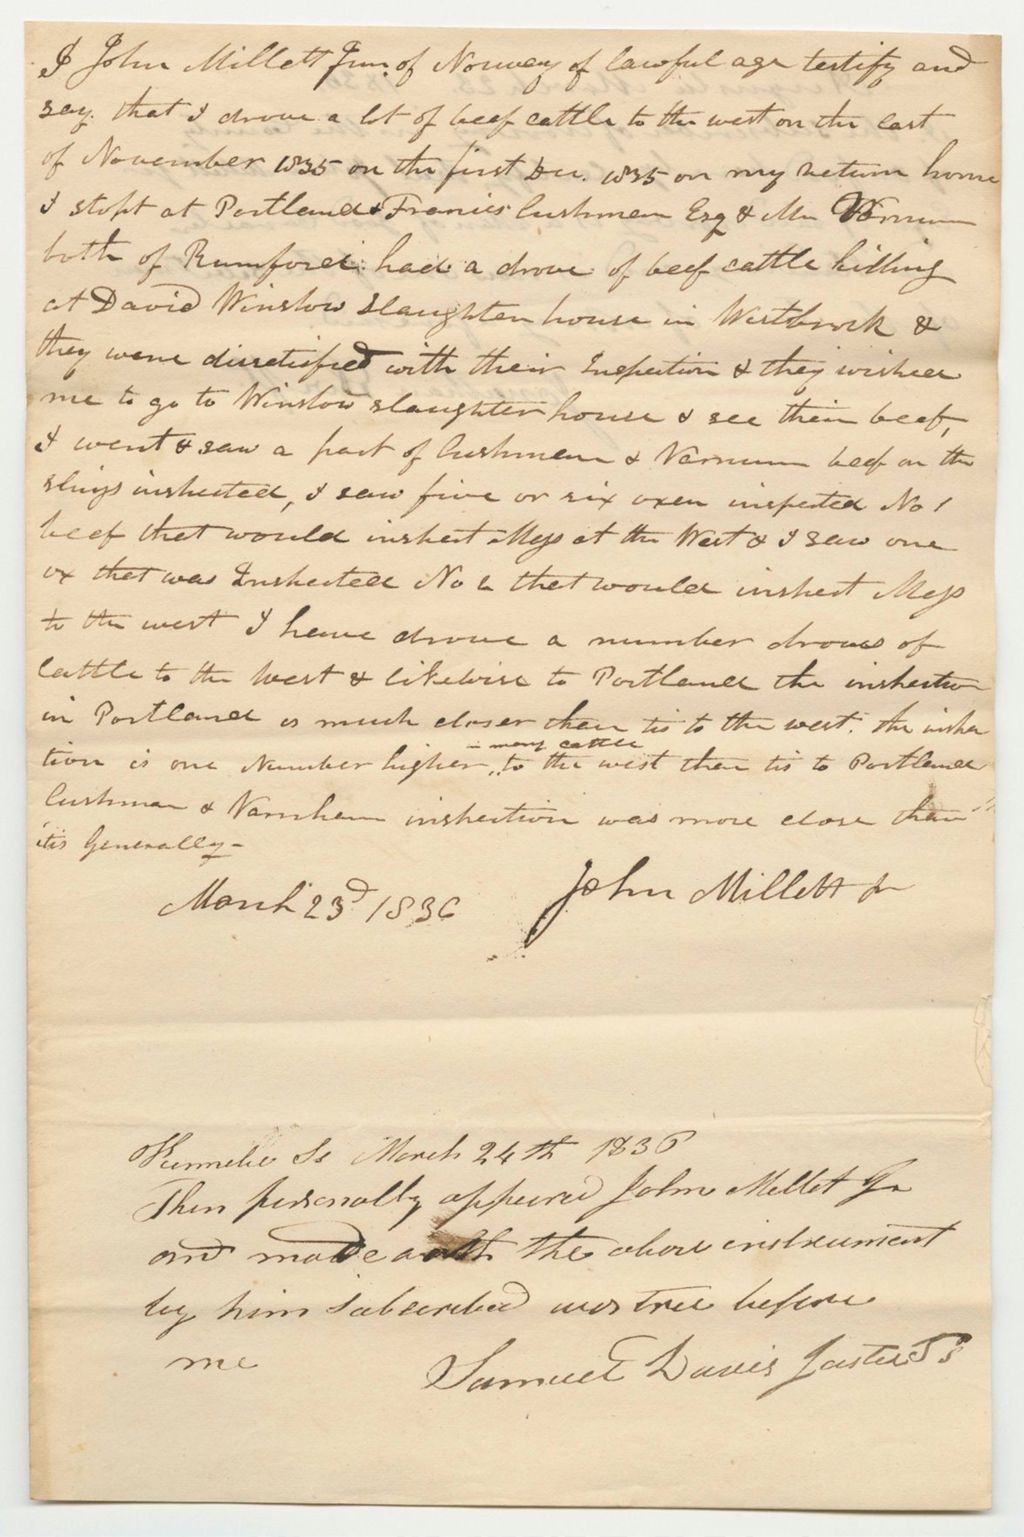 I John Millett Junr. of Norway of lawful age testify and
say. that I drove a lot of beef cattle to the west on the last
of November 1835 on the first Dec. 1835 on my return home
I stopt at Portland & Francis Cushman Esq & Mr Varnum
both of Rumford had a drove of beef cattle killing
at David Winslow slaughter house in Westbrook &
they were disretisfied with their Inspection & they wished
me to go to Winslow slaughter house & see their beef,
I went & saw a part of Cushman & Varnum beef on the
slings inspected, I saw five or six oxen inspected No 1
beef that would inspect Mess at the West & I saw one
ox that was Inspected No 2 that would inspect Mess
to the west I have drove a number droves of
Cattle to the West & likewise to Portland the inspection
in Portland is much closer than tis to the west. the inspec
tion is one Number higher in many cattle to the west than tis to Portland
Cushman & Varnham inspection was more close than
itis Generally-
March 23d 1836 John Millett Jr
Kennebec Ss March 24th 1836
Then personally appeared John Millet Jr
and made oath the above instrument
by him Subscribed was true before
me Samuel Davis Justice Ps